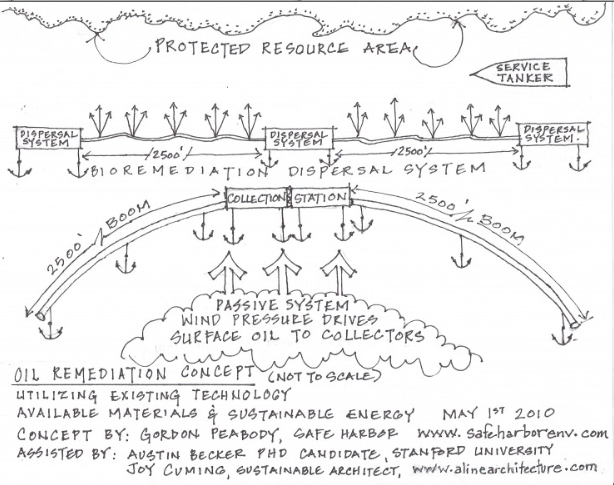 PROTECTED RESOURCE AREA
SERVICE
TANKER
DISPERSAL
SYSTEM
DISPERSAL
SYSTEM
DISPERSAL
SYSTEM.
2500'
2500'
BIOREMEDIATION DISPERSAL SYSTEM
2500' BOOM
COLLECTION STATION
2500' BOOM
PASSIVE SYSTEM
WIND PRESSURE DRIVES
SURFACE OIL TO COLLECTORS
OIL REMEDIATION CONCEPT (NOT TO SCALE)
UTILIZING EXISTING TECHNOLOGY
AVAILABLE MATERIALS & SUSTAINABLE ENERGY MAY 1ST 2010
CONCEPT BY: GORDON PEABODY, SAFE HARBOR www.safeharborenv.com
ASSISTED BY: AUSTIN BECKER PHD CANDIDATE, STANFORD UNIVERSITY
JOY CUMING, SUSTAINABLE ARCHITECT, www.alinearchitecture.com